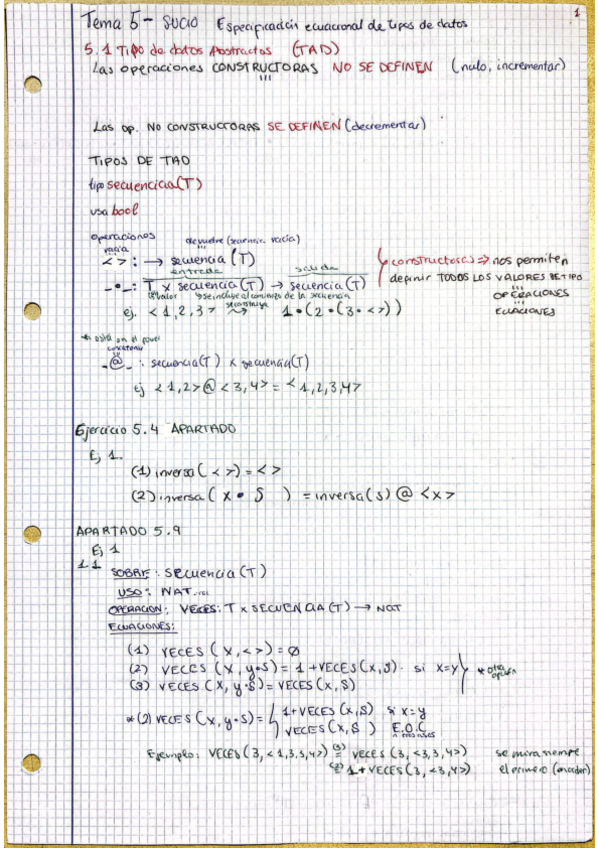 1
Tema 5 - SUCIO Especificación ecuacional de tipos de datos
5.1 Tipo de datos Abstractos (TAD)
Las operaciones CONSTRUCTORAS NO SE DEFINEN (nulo, incrementar)
Las op. NO CONSTRUCTORAS SE DEFINEN (decrementar)
TIPOS DE TAD
tipo secuencia(T)
usa bool
operaciones devuelve (secuencia vacía)
vacía
< > : → secuencia (T) constructoras ⇒ nos permiten
entrada salida
_•_ : T x secuencia(T) → secuencia(T) definir TODOS LOS VALORES DE TIPO
valor se incluye al comienzo de la secuencia OPERACIONES
se construye
ej. < 1,2,3 > ⤳ 1•(2•(3•< >)) ECUACIONES
* está en el power
concatenar
_@_ : secuencia(T) x secuencia(T)
Ej < 1,2 > @ < 3,4 > = < 1,2,3,4 >
Ejercicio 5.4 APARTADO
Ej 1.
(1) inversa ( < > ) = < >
(2) inversa ( x • S ) = inversa(s) @ <x>
APARTADO 5.9
Ej 1
1.1 SOBRE: secuencia(T)
USO: NAT...
OPERACION: VECES: T x SECUENCIA(T) → NAT
ECUACIONES:
(1) VECES ( X, < > ) = Ø
(2) VECES ( X, y•S ) = 1 + VECES(x,s). si x=y * otra opción
(3) VECES ( X, y•S ) = VECES (x, S)
*(2) VECES ( X, y•S ) = 1+VECES(x,S) si x=y
VECES(x, S ) E.O.C
Ejemplo: VECES (3, < 1,3,3,4 >) (3)= VECES (3, <3,3,4>) se mira siempre
(2)= 1 + VECES (3, <3,4>) el primero